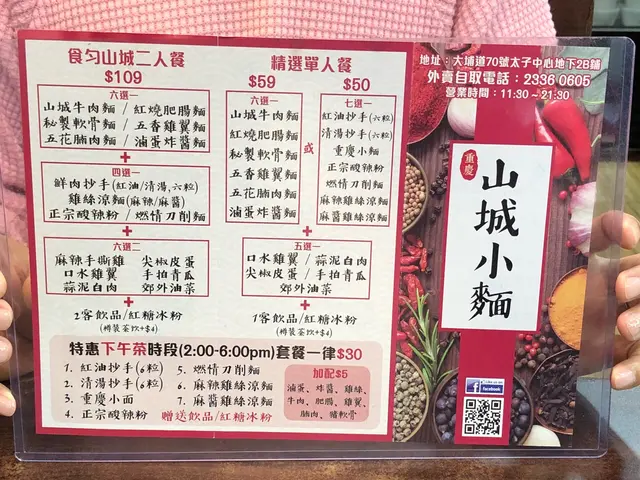 食勻山城二人餐
$109
六選一
山城牛肉麵 / 紅燒肥腸麵
秘製軟骨麵 / 五香雞翼麵
五花腩肉麵 / 滷蛋炸醬麵
+
四選一
鮮肉抄手(紅油/清湯,六粒)
雞絲涼麵(麻辣/麻醬)
正宗酸辣粉/燃情刀削麵
+
六選二
麻辣手撕雞 尖椒皮蛋
口水雞翼 手拍青瓜
蒜泥白肉 郊外油菜
+
2客飲品/紅糖冰粉
(樽裝茶飲+$4)
精選單人餐
$59
六選一
山城牛肉麵
紅燒肥腸麵
秘製軟骨麵
五香雞翼麵
五花腩肉麵
滷蛋炸醬麵
或
$50
七選一
紅油抄手(六粒)
清湯抄手(六粒)
重慶小麵
正宗酸辣粉
燃情刀削麵
麻辣雞絲涼麵
麻醬雞絲涼麵
+
五選一
口水雞翼 / 蒜泥白肉
尖椒皮蛋 / 手拍青瓜
郊外油菜
+
1客飲品/紅糖冰粉
(樽裝茶飲+$4)
特惠下午茶時段(2:00-6:00pm)套餐一律$30
1. 紅油抄手(6粒)
2. 清湯抄手(6粒)
3. 重慶小面
4. 正宗酸辣粉
5. 燃情刀削麵
6. 麻辣雞絲涼麵
7. 麻醬雞絲涼麵
贈送飲品/紅糖冰粉
加配$5
滷蛋、炸醬、雞絲、
牛肉、肥腸、雞翼、
腩肉、豬軟骨
地址:大埔道70號太子中心地下2B鋪
外賣自取電話:2336 0605
營業時間:11:30~21:30
重慶
山城小麵
facebook